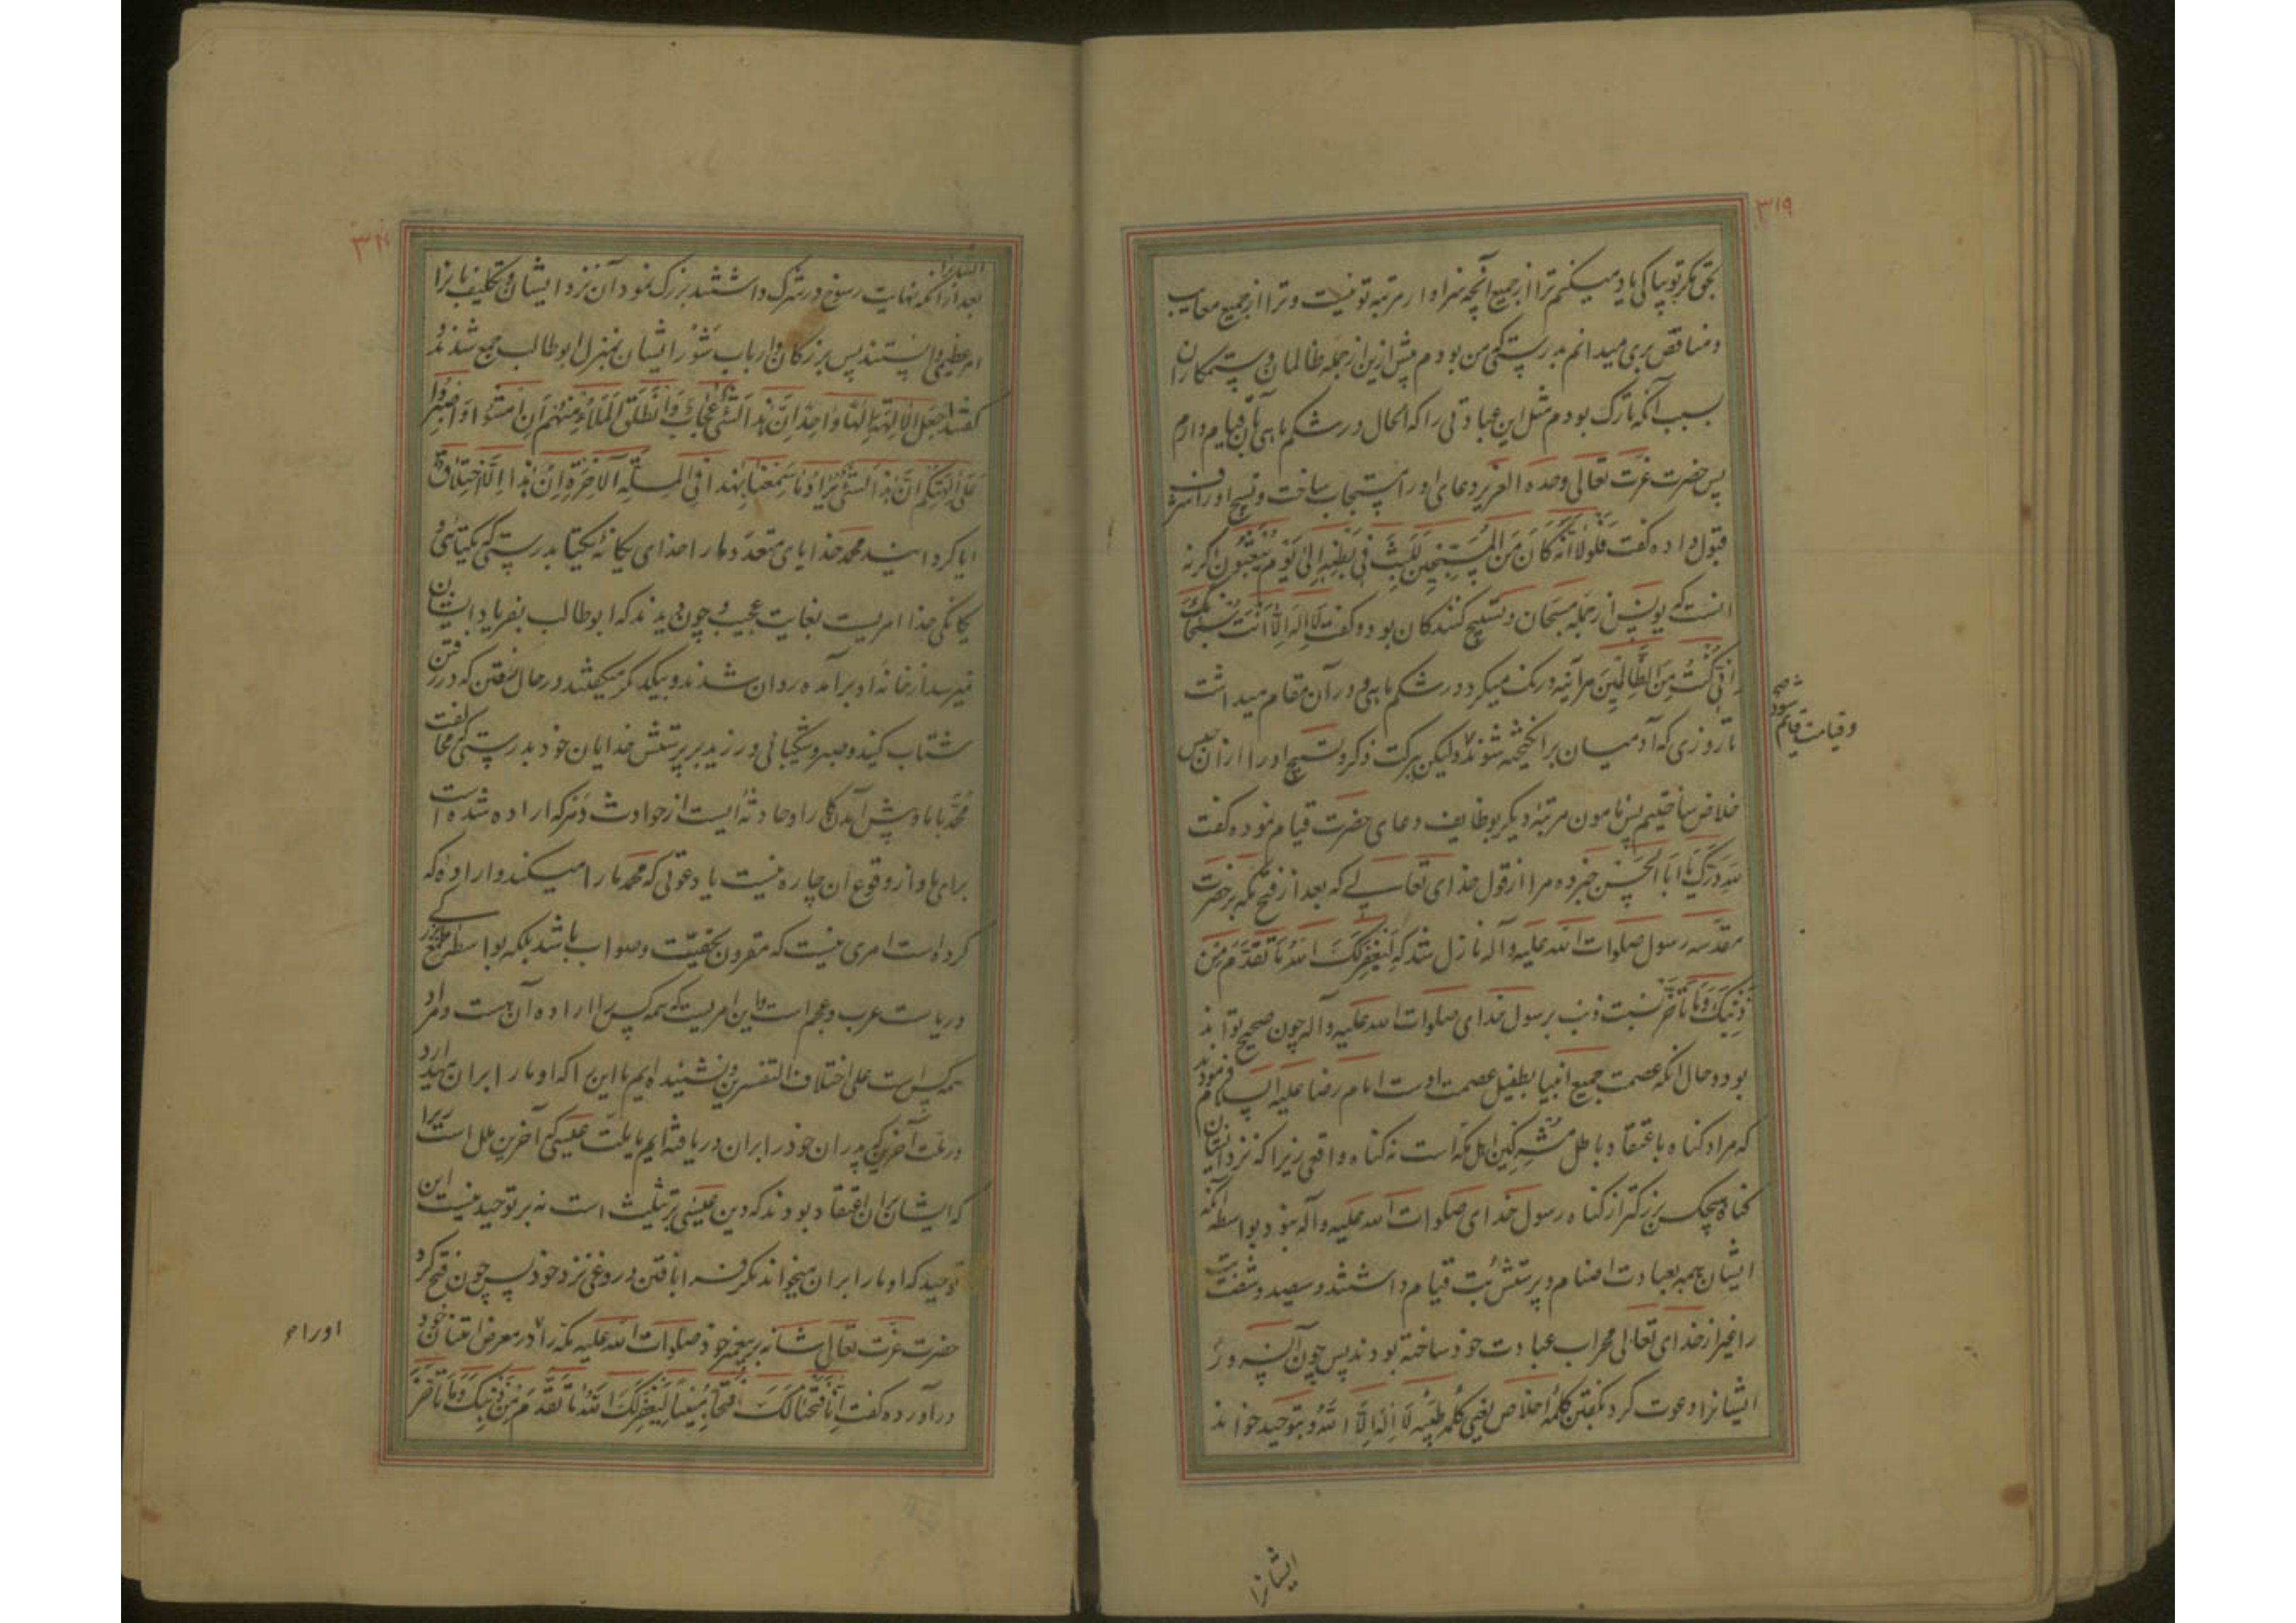 ۳۱۹
بحق مگر تو بپاکی یاد میکنم ترا از جمیع آنچه سزاوار مرتبه تو نیست و ترا از جمیع معایب
و مناقص بری میدانم بدرستی که من بودم پیش ازین از جمله ظالمان و ستمکاران
بسبب آنکه تارک بودم مثل این عبادتی را که الحال در شکم ماهی بآن قیام دارم
پس حضرت عزت تعالی وحده العزیز دعای او را مستجاب ساخت و تسبیح او را شرف
قبول داده گفت فَلَولا اَنَّهُ کانَ مِنَ المُسَبِّحینَ لَلَبِثَ فی بَطنِهِ اِلی یَومِ یُبعَثونَ اگر نه
آنست که یونس از جمله مسبحان و تسبیح کنندگان بود و گفت لا اِلهَ اِلّا اَنتَ سُبحانَکَ
اِنّی کُنتُ مِنَ الظّالِمینَ هر آینه درنگ میکرد در شکم ماهی و در آن مقام میداشت
تا روزی که آدمیان برانگیخته شوند و لیکن ببرکت ذکر و تسبیح او را از آن حبس
و قیامت قایم شود صح
خلاص ساختیم پس مامون مرتبهٔ دیگر بوظایف دعای حضرت قیام نموده گفت
لله درک یا ابا الحسن خبر ده مرا از قول خدای تعالی که بعد از فتح مکه بر حضرت
مقدسه رسول صلوات الله علیه و آله نازل شد که لِیَغفِرَ لَکَ اللهُ ما تَقَدَّمَ مِن
ذَنبِکَ وَ ما تَاَخَّرَ نسبت ذنب برسول خدای صلوات الله علیه و آله چون صحیح تواند
بود و حال آنکه عصمت جمیع انبیا بطفیل عصمت اوست امام رضا علیه السلام فرمودند
که مراد گناه باعتقاد باطل مشرکین اهل مکه است نه گناه واقعی زیرا که نزد ایشان
گناه هیچکس بزرگتر از گناه رسول خدای صلوات الله علیه و آله نبود بواسطه آنکه
ایشان همه بعبادت اصنام و پرستش بت قیام داشتند و سیصد و شصت بت
را غیر از خدای تعالی محراب عبادت خود ساخته بودند پس چون آن سرور
ایشانرا دعوت کرد بگفتن کلمهٔ اخلاص یعنی کلمه طیبه لا اِلهَ اِلّا اللهُ و بتوحید خواند
ایشانرا
ایشانرا
بعد از آنکه نهایت رسوخ در شرک داشتند بزرگ نمود آن نزد ایشان و تکلیف ما نرا
امر عظیمی دانستند پس بزرگان و ارباب شور ایشان بمنزل ابوطالب جمع شدند و
گفتند اَجَعَلَ الآلِهَةَ اِلهًا واحِدًا اِنَّ هذا لَشَیءٌ عُجابٌ وَ انطَلَقَ المَلَأُ مِنهُم اَنِ امشوا وَ اصبِروا
عَلی آلِهَتِکُم اِنَّ هذا لَشَیءٌ یُرادُ ما سَمِعنا بِهذا فِی المِلَّةِ الآخِرَةِ اِن هذا اِلَّا اختِلاقٌ
ایا گردانید محمد خدایای متعدد مار اخدای یگانهٔ یکتا بدرستی که یکتائی و
یگانگی خدا امریست بغایت عجیب و چون دیدند که ابوطالب بفریاد ایشان
نمیرسد از خانهٔ او برآمده روان شدند و بیکدیگر میگفتند در حال رفتن که در رفتن
شتاب کنید و صبر و شکیبائی ورزید بر پرستش خدایان خود بدرستی که مخالفت
محمد با ما و پیش آمدن کار او حادثه ایست از حوادث دهر که اراده شده است
برای ما و از وقوع آن چاره نیست یا دعوتی که محمد ما را میکند و اراده که
کرده است امری نیست که مقرون بحقیت و صواب باشد بلکه بواسطه طمع بزرگی
در ریاست عرب و عجم است و این امریست که همه کس را اراده آن هست و مراد
همه کس است علی اختلاف التفسرین و نشنیده ایم ما این را که او ما را بران میدارد
در ملت آخرین که پدران خود را بران دریافته ایم یا ملت عیسی که آخرین ملل است زیرا
که ایشان بر آن اعتقاد بودند که دین عیسی بر تثلیث است نه بر توحید نیست این
توحید که او ما را بران میخواند مگر افترا بافتن دروغی نزد خود پس چون فتح کرد
حضرت عزت تعالی شانه بر پیغمبر خود صلوات الله علیه مکه را در معرض امتنان خود
اورا
درآورده گفت اِنّا فَتَحنا لَکَ فَتحًا مُبینًا لِیَغفِرَ لَکَ اللهُ ما تَقَدَّمَ مِن ذَنبِکَ وَ ما تَاَخَّرَ